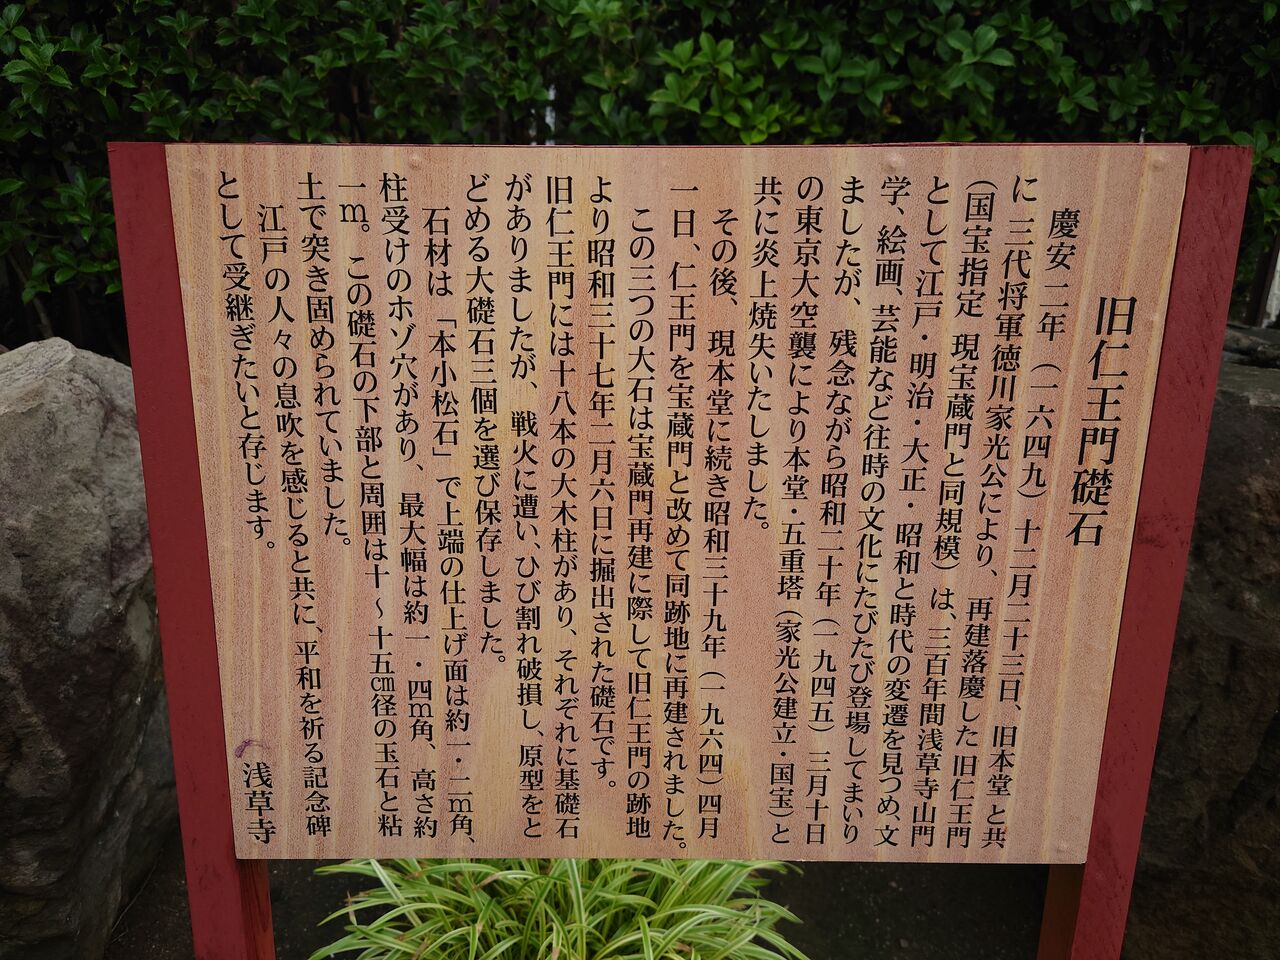 旧仁王門礎石
慶安二年（一六四九）十二月二十三日、旧本堂と共
に三代将軍徳川家光公により、再建落慶した旧仁王門
（国宝指定　現宝蔵門と同規模）は、三百年間浅草寺山門
として江戸・明治・大正・昭和と時代の変遷を見つめ、文
学、絵画、芸能など往時の文化にたびたび登場してまいり
ましたが、残念ながら昭和二十年（一九四五）三月十日
の東京大空襲により本堂・五重塔（家光公建立・国宝）と
共に炎上焼失いたしました。
その後、現本堂に続き昭和三十九年（一九六四）四月
一日、仁王門を宝蔵門と改めて同跡地に再建されました。
この三つの大石は宝蔵門再建に際して旧仁王門の跡地
より昭和三十七年二月六日に掘出された礎石です。
旧仁王門には十八本の大木柱があり、それぞれに基礎石
がありましたが、戦火に遭い、ひび割れ破損し、原型をと
どめる大礎石三個を選び保存しました。
石材は「本小松石」で上端の仕上げ面は約一・二ｍ角、
柱受けのホゾ穴があり、最大幅は約一・四ｍ角、高さ約
一ｍ。この礎石の下部と周囲は十～十五㎝径の玉石と粘
土で突き固められていました。
江戸の人々の息吹を感じると共に、平和を祈る記念碑
として受継ぎたいと存じます。
浅草寺